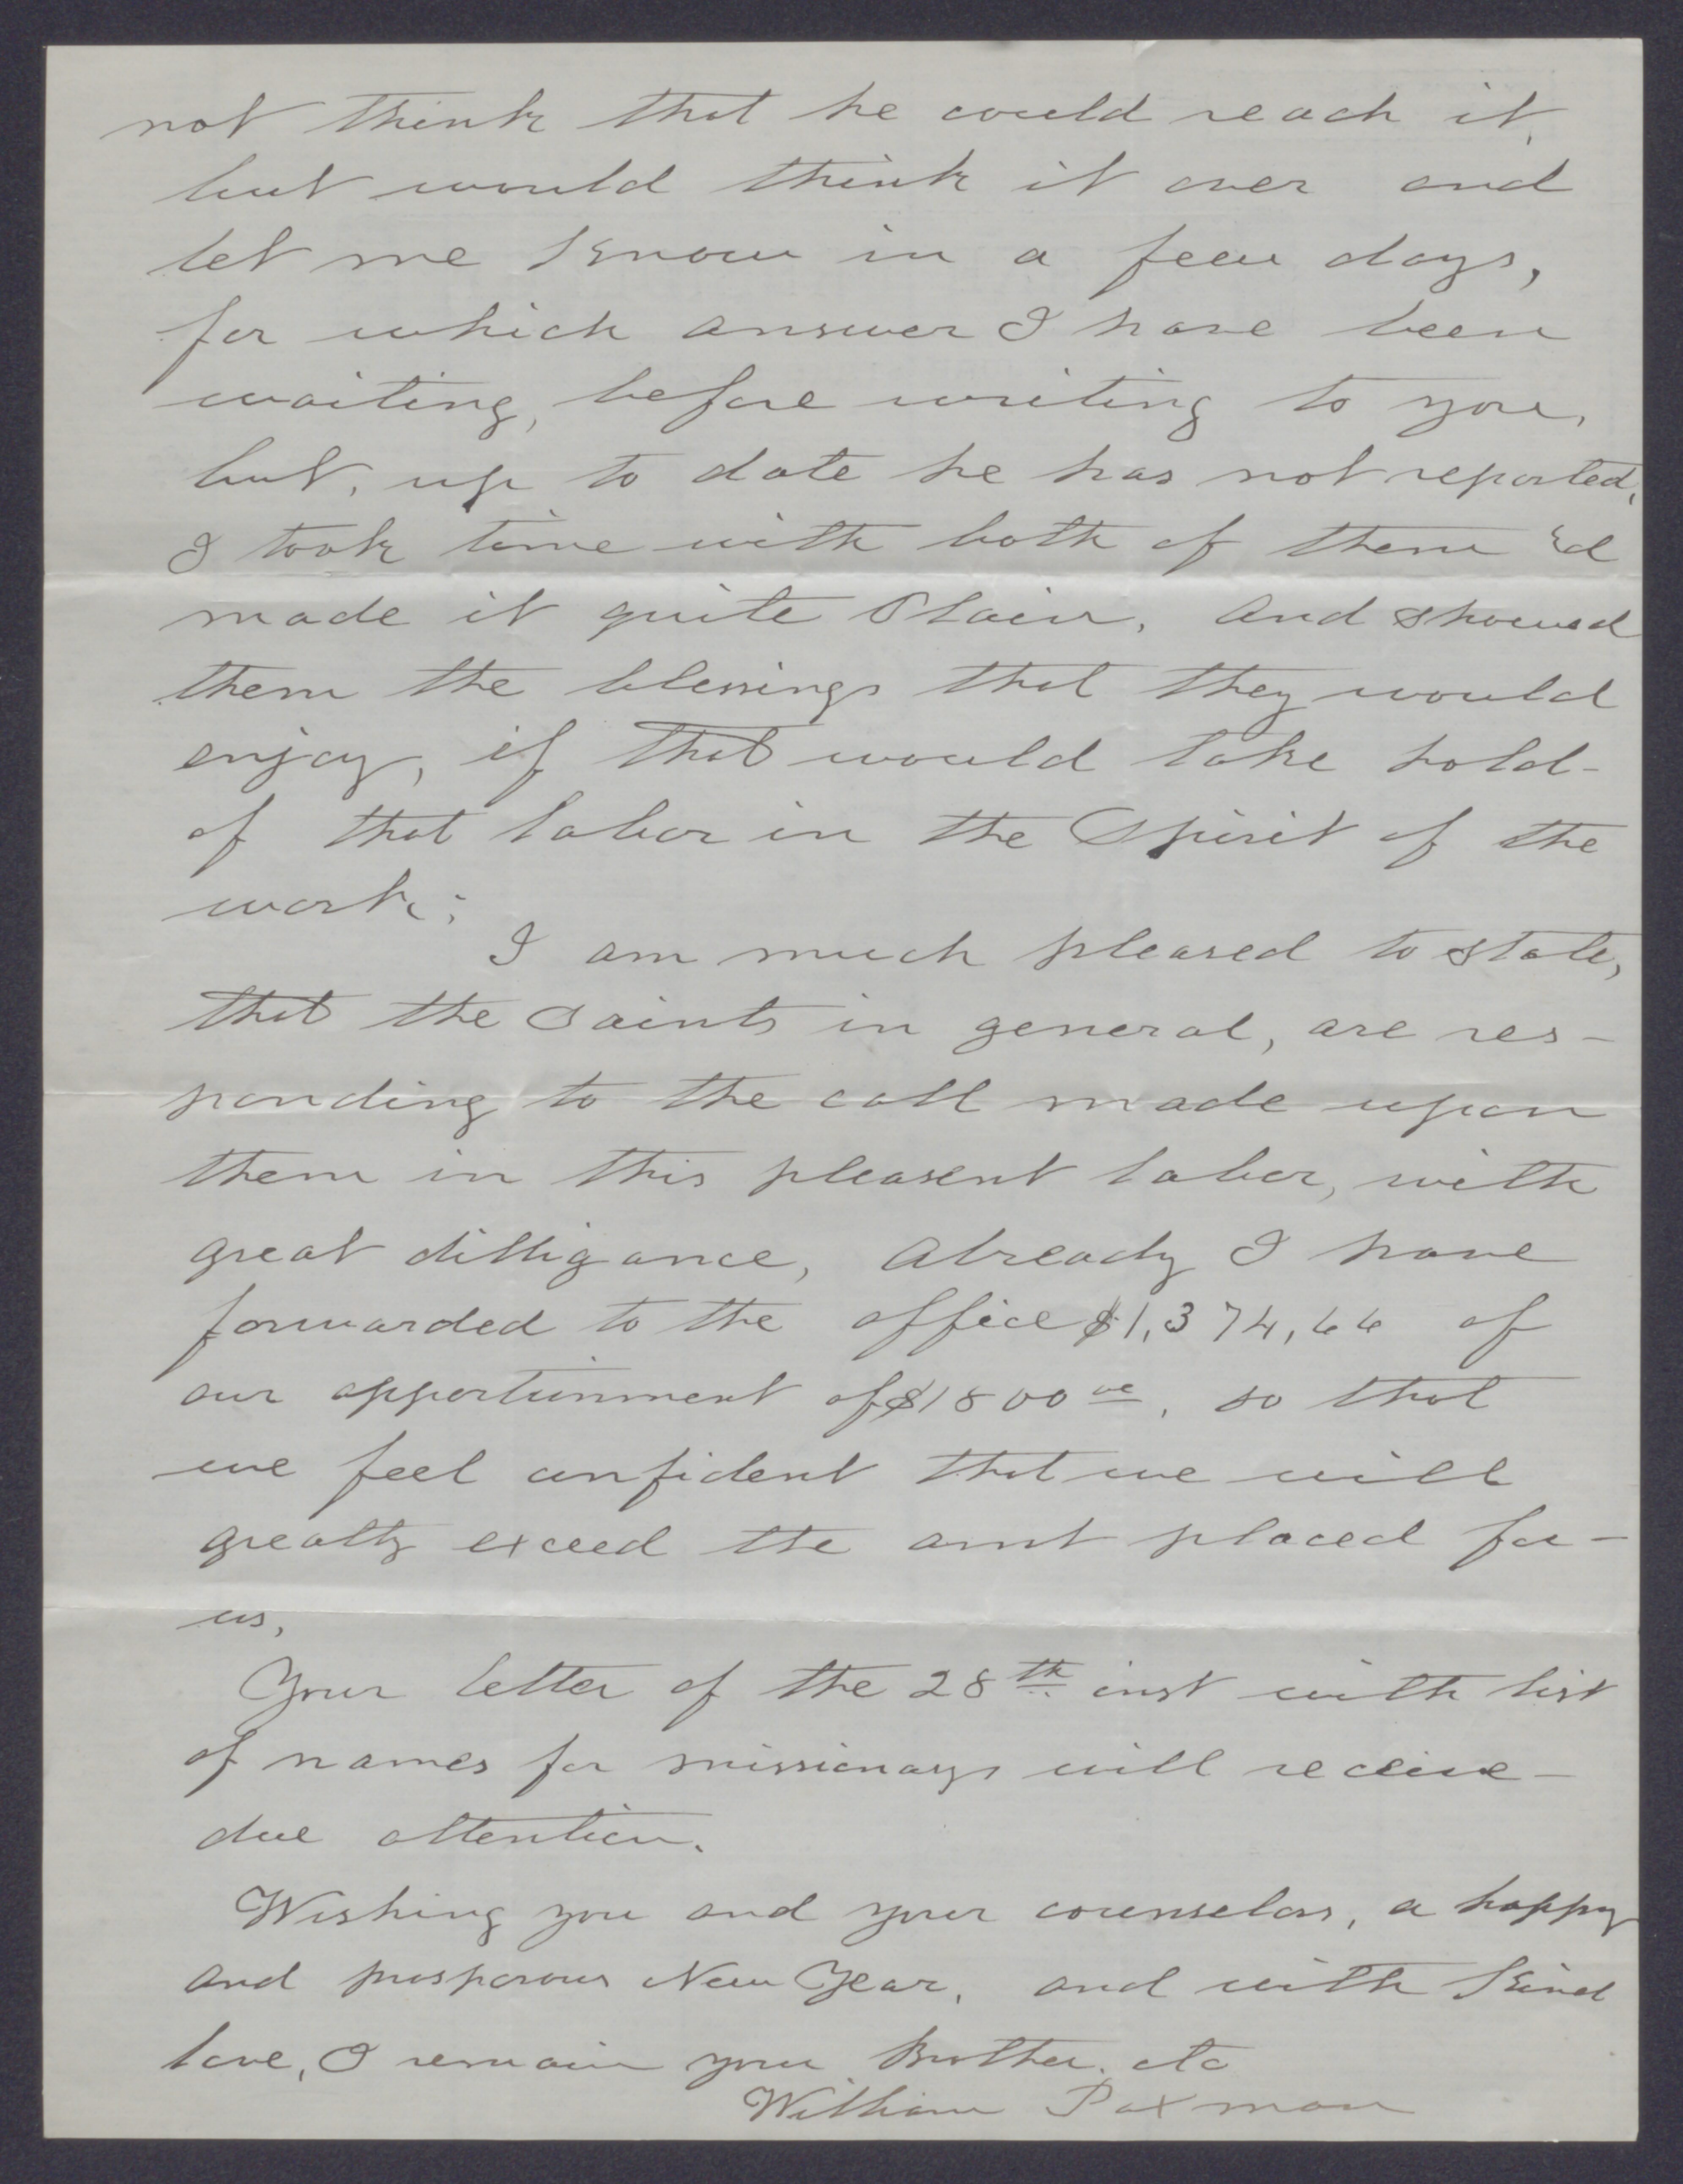 not think that he could reach it,
but would think it over and
let me know in a few days,
for which answer I have been
waiting, before writing to you,
but, up to date he has not reported,
I took time with both of them &d
made it quite Plain, and showed
them the blessings that they would
enjoy, if that would take hold-
of that labor in the Spirit of the
work;
I am much pleased to state,
that the Saints in general, are res-
ponding to the call made upon
them in this pleasent labor, with
great dilligance, Already I have
forwarded to the office $1,374,66 of
our apportinment of $1800 00, so that
we feel confident that we will
greatly exceed the amt placed for-
us,
Your letter of the 28th inst with list
of names for missionarys will receive-
due attention.
Wishing you and your counselors, a happy
and prosperous New Year, and with Kind
love, I remain your Brother. etc
William Paxman